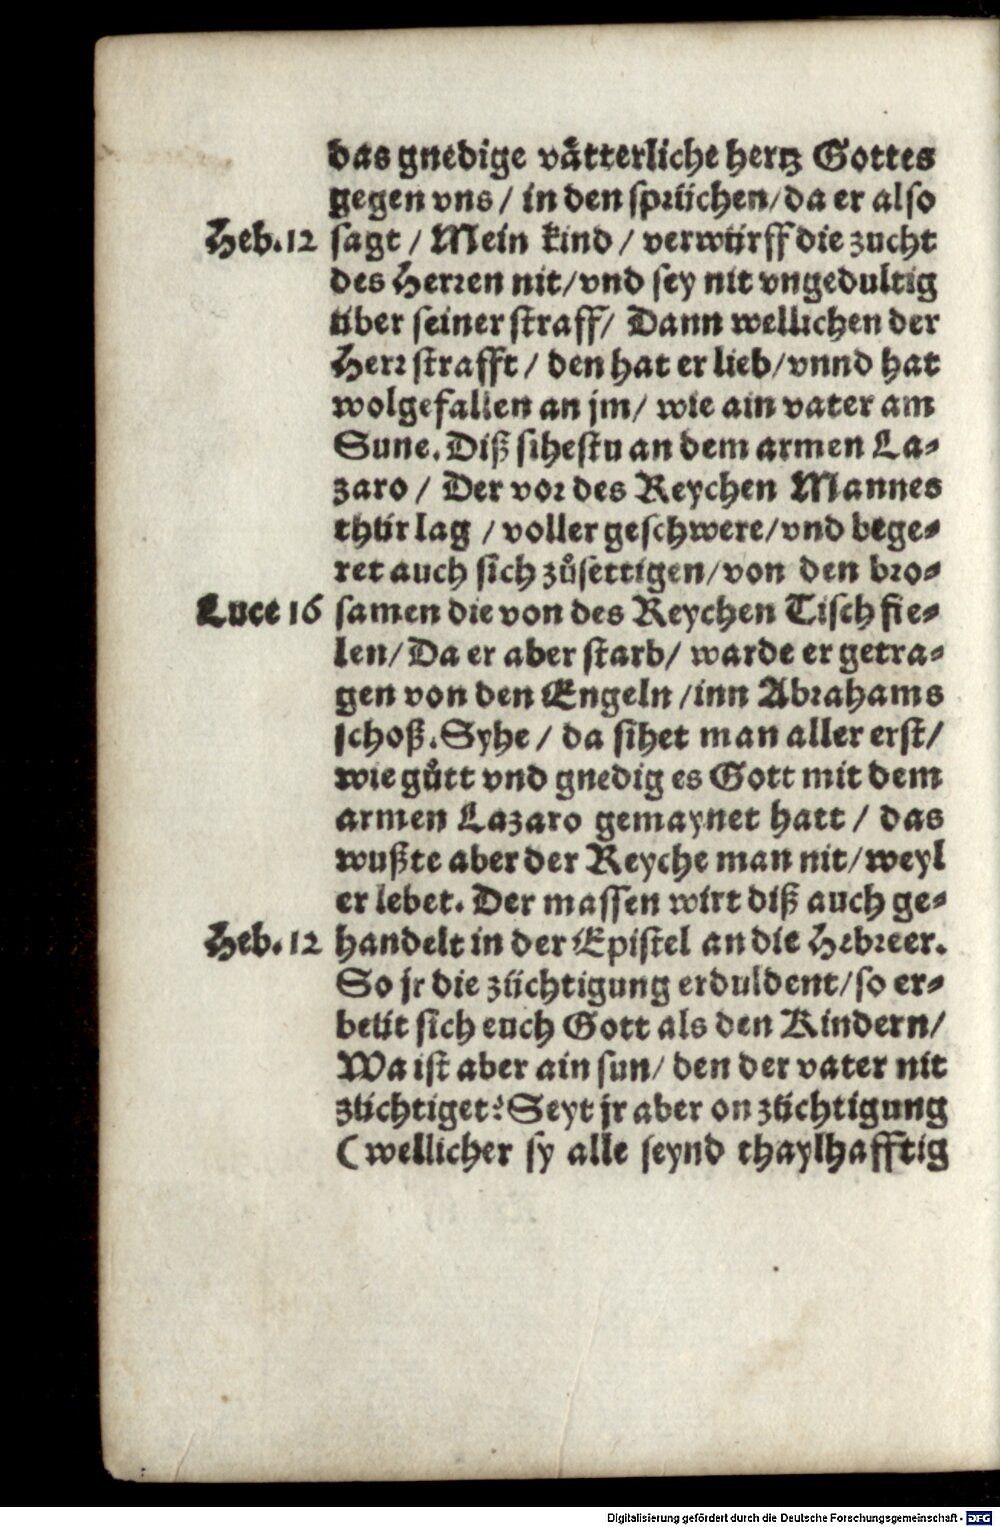 das gnedige vätterliche hertz Gottes
gegen vns / in den sprüchen / da er also
Heb. 12 sagt / Mein kind / verwürff die zucht
des Herren nit / vnd sey nit vngedultig
über seiner straff / Dann wellichen der
Herr strafft / den hat er lieb / vnnd hat
wolgefallen an jm / wie ain vater am
Sune. Diß sihestu an dem armen La-
zaro / Der vor des Reychen Mannes
thür lag / voller geschwere / vnd bege-
ret auch sich zůsettigen / von den bro-
Luce 16 samen die von des Reychen Tisch fie-
len / Da er aber starb / warde er getra-
gen von den Engeln / inn Abrahams
schoß. Syhe / da sihet man aller erst /
wie gůtt vnd gnedig es Gott mit dem
armen Lazaro gemaynet hatt / das
wußte aber der Reyche man nit / weyl
er lebet. Der massen wirt diß auch ge-
Heb. 12 handelt in der Epistel an die Hebreer.
So jr die züchtigung erduldent / so er-
beüt sich euch Gott als den Kindern /
Wa ist aber ain sun / den der vater nit
züchtiget? Seyt jr aber on züchtigung
(wellicher sy alle seynd thaylhafftig
Digitalisierung gefördert durch die Deutsche Forschungsgemeinschaft - DFG